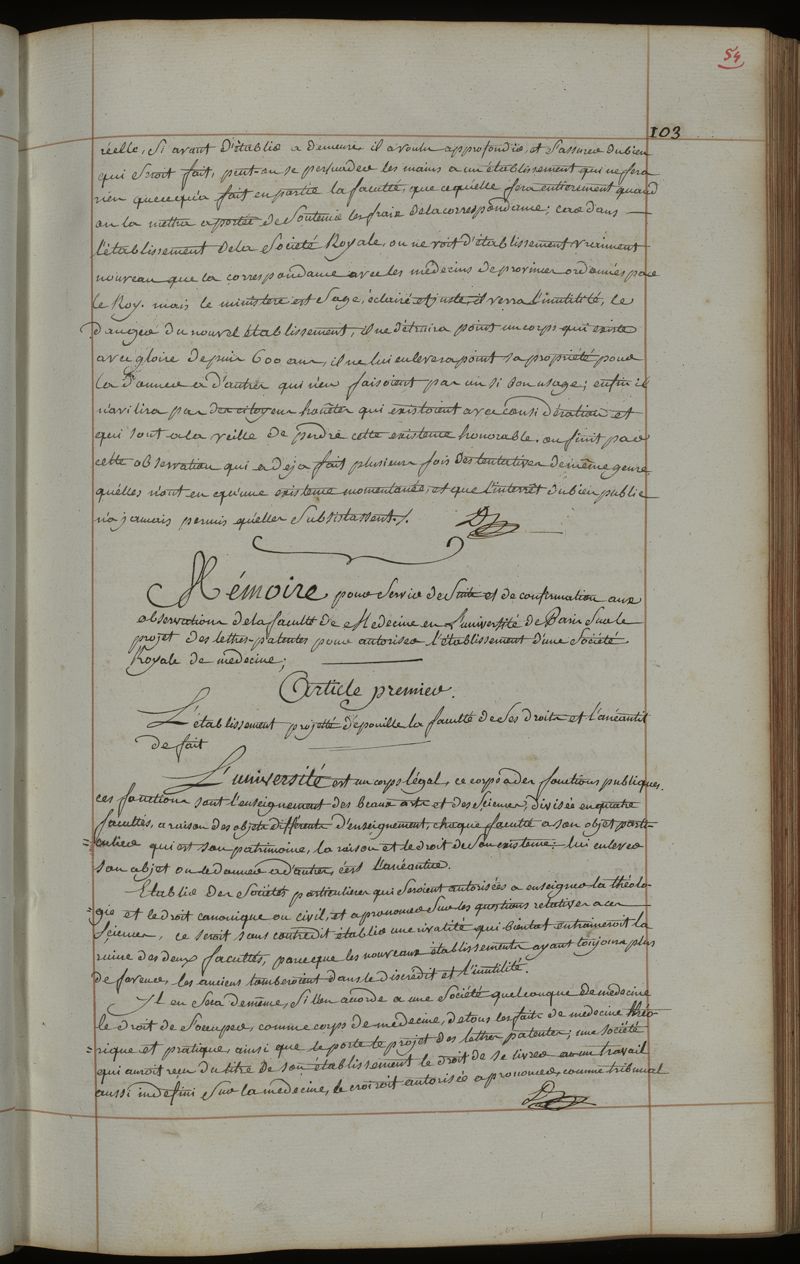 54
103
réelle, Si avant D'établir a demeure il a voulu approfondir, et S'assurer du bien
qui Seroit fait, peut-on se persuader les mains a un établissement qui ne fera
rien que ce qu'a fait en partie la faculté, que ce qu'elle fera entierement quand
on la mettra a portée de Soutenir les frais de la correspondance; car dans
l'établissement de la Société Royale, on ne voit d'établissement vraiment
nouveau que la correspondance avec les médecins de province ordonnées par
le Roy. mais le ministere est Sage, éclairé et juste, il verra l'inutilité, le
danger du nouvel établissement, il ne détruira point un corps qui existe
avec gloire depuis 600 ans, il ne lui enlevera point sa propriété pour
la donner a d'autres qui n'en faisoient pas un si bon usage; enfin il
n'avilira pas des citoyens honêtes qui existoient avec consideration et
qui sont a la veille de perdre cette existence honorable. on finit par
cette observation qui a deja fait plusieurs fois des tentatives de même genre
quélles n'ont eu qu'une existence momentanée, et que l'interrêt du bien public
n'a jamais permis qu'elles Subsistassent./.
Mémoire pour Servir de Suite et de confirmation aux
observations de la faculté de Medecine en L'université de Paris Sur le
projet des lettres-patentes pour autoriser l'établissement d'une Société
Royale de medecine;
Article premier.
L'établissement projetté dépouille la faculté de Ses droits et l'anéantit
de fait
L'université est un corps légal, ce corps a des fonctions publiques.
ces fonctions sont l'enseignement des beaux arts et des Sciences, divisée en quatre
facultés, a raison des objets différents d'enseignement, chaque faculté a son objet parti-
=culier qui est son patrimoine, la raison et le droit de Son existence: lui enlever
son objet ou le donner a d'autres, c'est l'anéantir.
Etablir des Sociétés particulieres qui Seroient autorisées a enseigner la théolo-
=gie et le droit canonique ou civil, et a prononcer Sur les questions relatives a ces
Sciences, ce seroit sans contredit établir une rivalité qui bientot entraineroit la
ruine des deux facultés, parce que les nouveaux établissements ayant toujours plus
de faveur, les anciens tomberoient dans le discrédit et l'inutilité.
Il en Sera de même, Si l'on acorde a une Société quelconque de médecine
le droit de S'ocuper, comme corps de medecine, de tous les faits de medecine théo-
=rique et pratique, ainsi que le porte le projet des lettres patentes; une société
qui auroit reçu du titre de son établissement le droit de se livrer a un travail
aussi indefini Sur la médecine, se croiroit autorisée a prononcer, comme tribunal